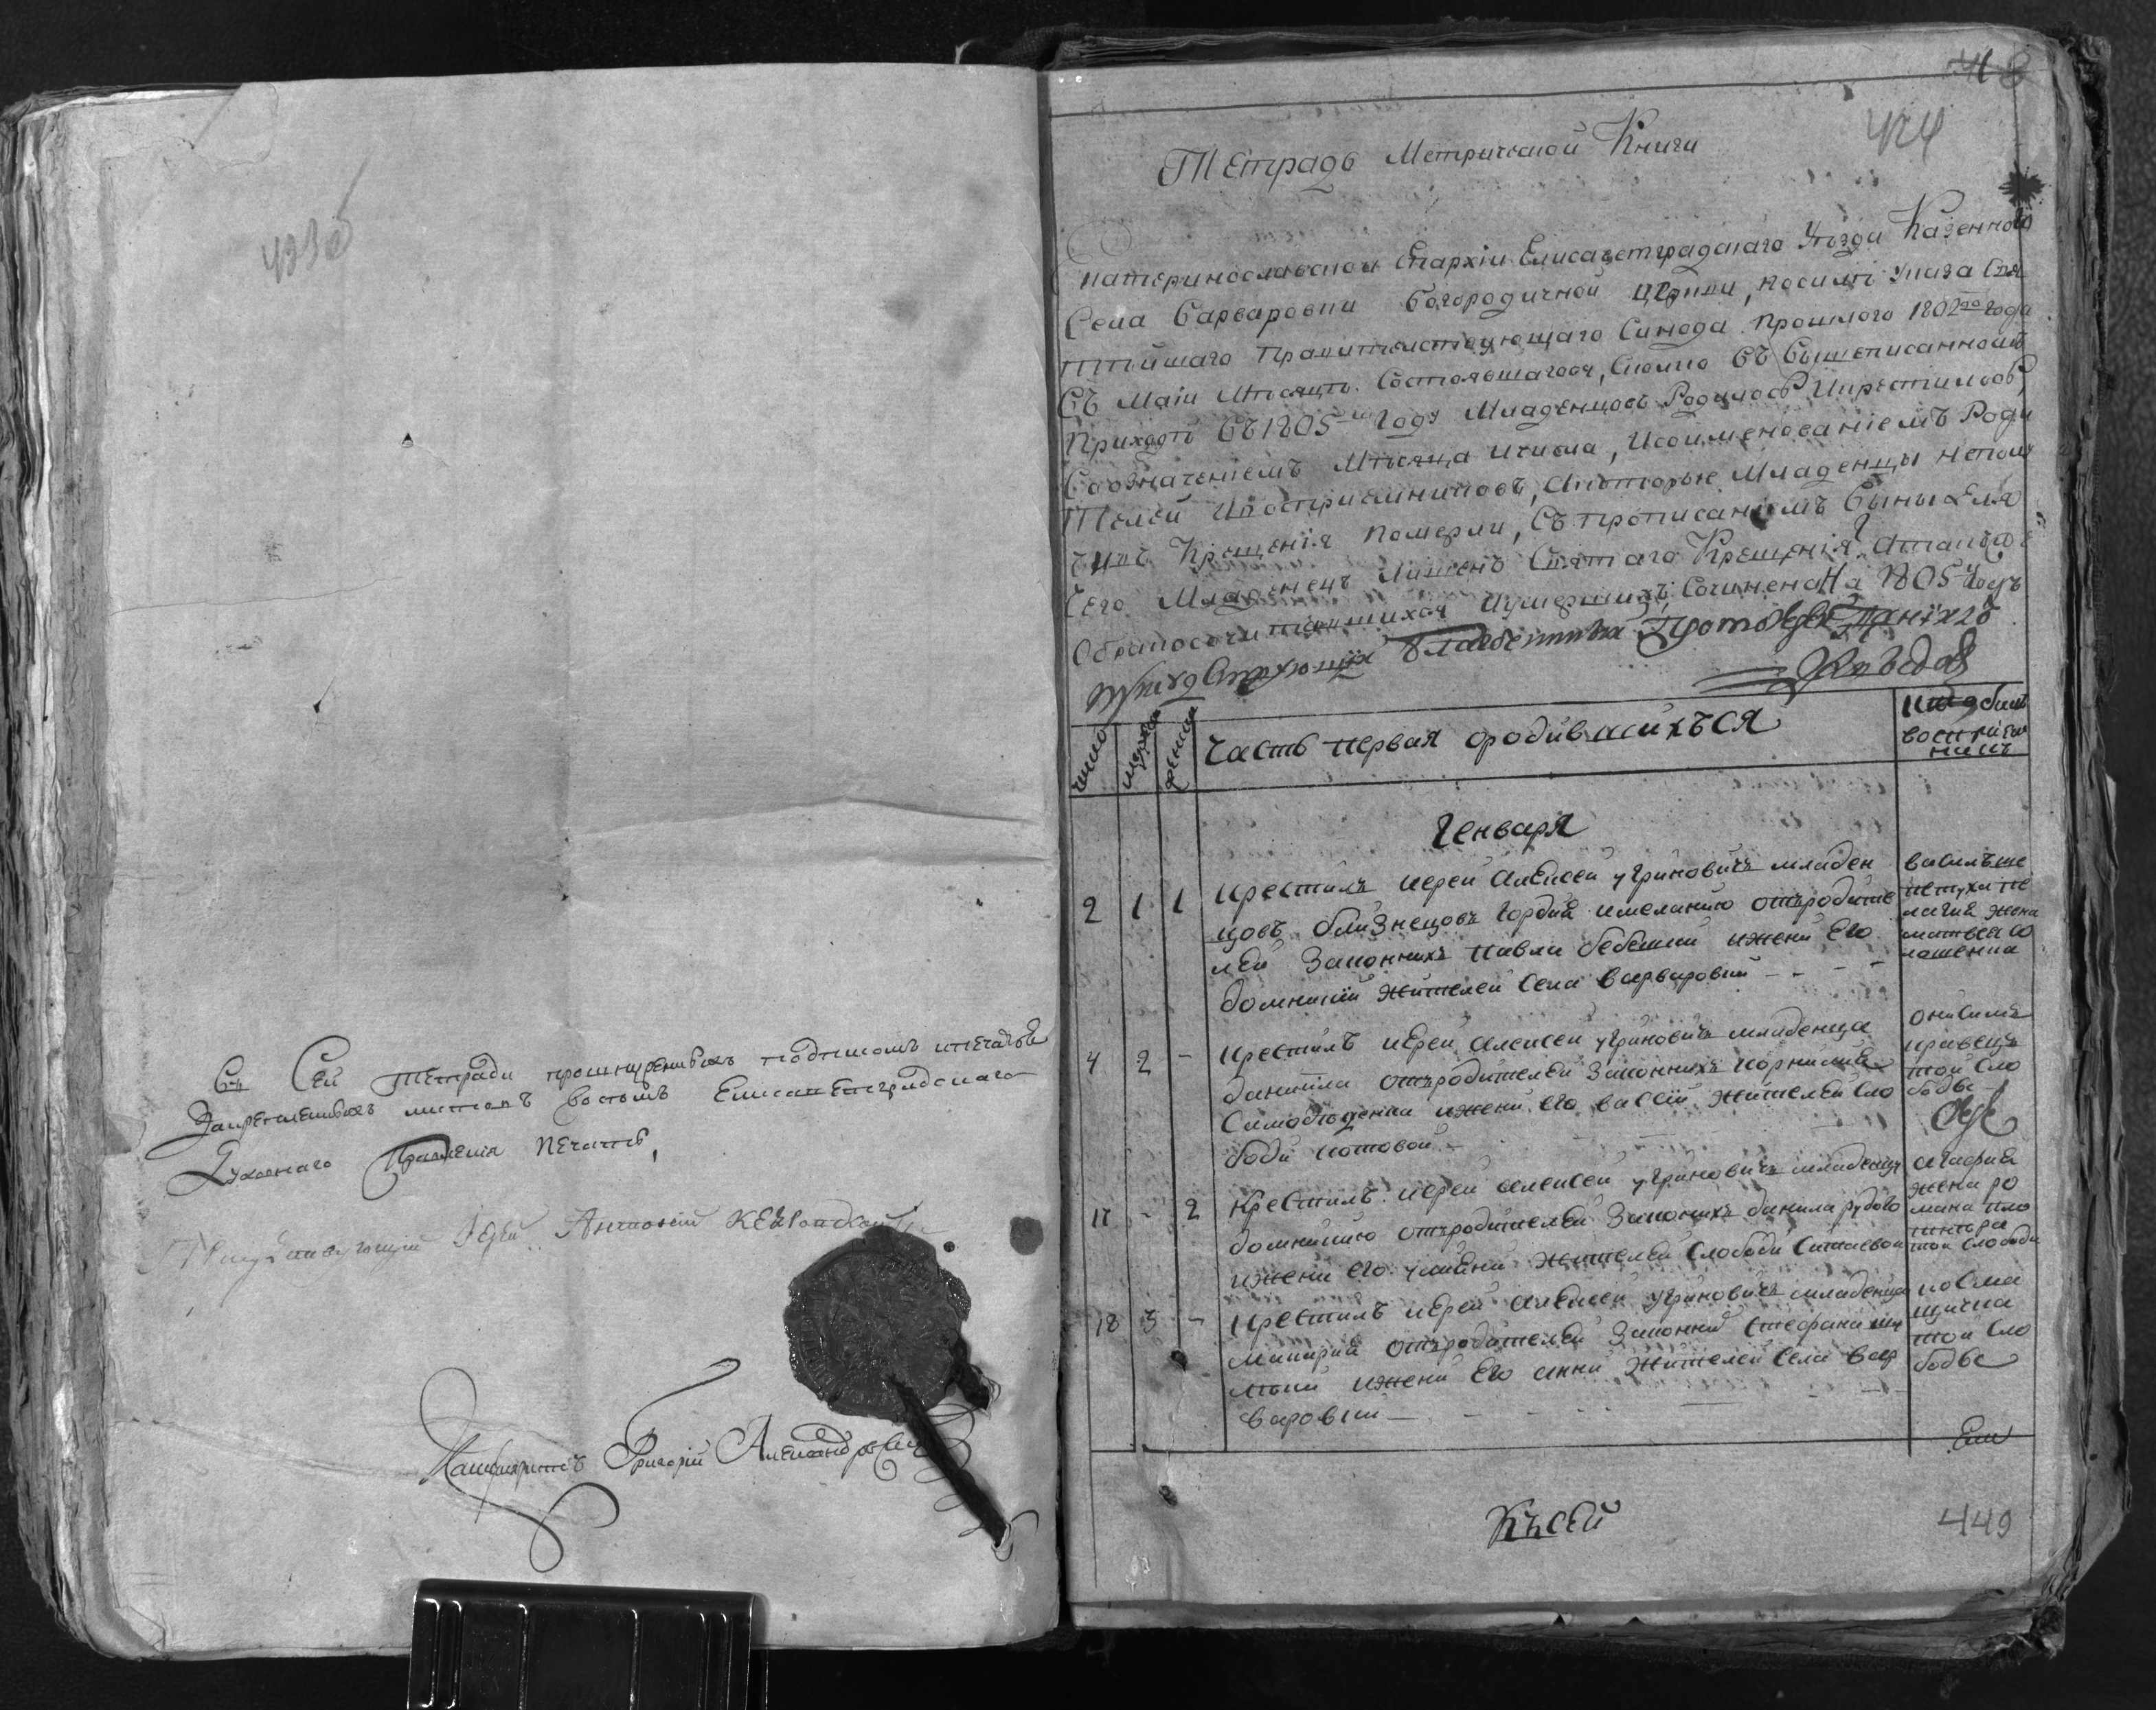 423об
Въ Сей Тетради прошнуренныхъ подписомъ ипечатью
Закрепленныхъ листовъ восемъ Елисаветградскаго
Духовнаго Правленія Печать,
Присудствующій Іерей Антоній
Канцеляристъ Григорій Александровъ
418
424
ТЕтрадь Метрической Книги
Екатеринославской Епархіи Елисаветградскаго Уѣзда Казеннаго
Села Варваровки Богородичной Церкви, посилѣ Указа Свя
тѣйшаго Правителствующаго Синода Прошлого 1802го года
Въ Маіи Мѣсяцѣ Состоявшагося, Сколко Въ Вышеписанномъ
Приходѣ Въ 1805мъ Году Младенцовъ Родилось Икрестилось,
Соозначеніемъ Мѣсяца ичисла, Исоименованіемъ Роди
Телей Ивосприемниковъ, Акоторые Младенцы непол
чивъ Крещенія Померли, Съ прописаніемъ Вины для
Чего Младенецъ Лишенъ Святаго Крещенія, Атакже
Обракосочитавшихся Иумершихъ; Сочинена На 1805й Годъ
Присудствующій Протоіерей Даніилъ
число
мужеска
женска
Часть первая ородившихъся
Ктобылъ
восприем
никъ
Генваря
2 1 1
Крестилъ иерей Алексей угриновичъ младен
цовъ близнецовъ Гордия имеланию отъродите
лей Законныхъ Павла бебешки ижени Его
домникии Жителей Села варваровки
василь ше
петуха пе
лагия жена
матвея со
лашенка
4 2 -
Крестилъ иерей Алексей угриновичъ младенца
даниила отъродителей Законныхъ корнилия
Самодѣденка ижени его васси Жителей Сло
боди котовой
онисимъ
кравецъ
той Сло
боды
17 - 2
Крестилъ иерей алексей угриновичъ младенцу
домникию отъродителей Законыхъ данила рудого
ижени его улияни Жителей Слободи Ситаевой
агафия
жена ро
мана пло
тнтора
той слободи
18 3 -
Крестилъ иерей алексей угриновичъ младенца
макария отъродителей Законны Стефана
ижени Его анни Жителей Села вар
варовки
косма
щичка
той Сло
бодье
Ели
Къ сей
449